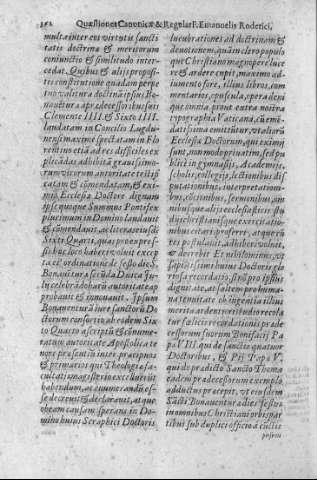 352 Quæstiones Canonicæ & Regular F. Emanuelis Roderici,
multa inter eos virtutis sancti
tatis doctrina & meritorum
coniunctio & similitudo inter-
cedat. Quibus & alijs proposi-
tis constitutione quadam perpe
tuo valitura doctrinā ipsius Bo-
nauentura aprædecessoribus suis
Clemente IIII. & Sixto IIII.
laudatam in Concilio Lugdu-
nensi maximè spectatam in Flo
rentino etiā ad res difficiles ex
plicādas adhibitā grauissimo-
rum virorum autoritate testifi
catam & cōmendatam, & exi-
mij Ecclesiæ Doctore dignam
ipse quoque Summus Pontifex
plurimum in Domino laudauit
& cōmendauit, ac literas eiusdē
Sixti Quarti, quas pro expres-
sis hoc loco haberi voluit excep
ta ordinatione de festo die S.
Bonauēturæ secūda Dnica Iu-
lij celebrādo harū autoritate ap
probauit & innouauit. Ipsum
Bonauenturā iure sanctorū Do
ctorum consortio ab eodem Six
to Quarto ascriptū & connume-
ratum autoritate Apostolica te
nore præsentiū inter præcipuos
& primarios qui Theologiæ fa-
cultatis magisterio excelluerūt
habendum, ac venerandū es-
se decreuit & declarauit, atque
ob eam causam sperans in Do-
mino huius Seraphici Doctoris
lucubrationes ad doctrinam &
deuotionem, quā in clero populo
que Christiano magnopere luce
re & ardere cupit maximo ad
iumento fore, illius libros, com
mentarios, opuscula, opera deni
que omnia prout extra nostra
typographia Vaticana, cū emē
datissima emittūtur, vt aliorū
Ecclesiæ Doctorum, qui eximij
sunt, non modo priuatim, sed pu
blicè in gymnasijs, Academijs,
scholis, collegijs, lectionibus dis
putationibus, interpretationi-
bus, cōcionibus, sermonibus, om
nibusque alijs ecclesiasticis stu
dijs christianisque exercitatio-
nibus citari, proferri, atque vt
res postulauit, adhiberi voluit,
& decreuit. Et nihilominus, vt
sapiētissimi huius Doctoris glo
riosa recordatio, si nō pro ipsius
dignitate, at saltem pro huma-
na tenuitate ob ingentia illius
merita ardentiori studio recola
tur felicis recordationis præde
cessorum suorum Bonifacij Pa
pæ VIII. qui de sanctis quatuor
Doctoribus, & Pij Papæ V.
qui de prædicto Sancto Thoma
eadem prædecessorum exemplo
adductus præcepit, vt eiusdem
Sācti Bonauenturæ dies festus
in omnibus Christiani orbis par
tibus sub duplici officio à cūctis
poster